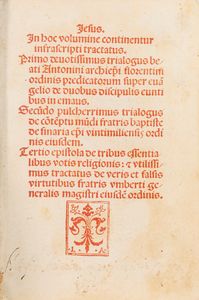 Jesus.
In hoc volumine continentur
infrascripti tractatus.
Primo deuotissimus trialogus be
ati Antonini archiepi florentini
ordinis predicatorum super euā
gelio de duobus discipulis eunti
bus in emaus.
Secūdo pulcherrimus trialogus
de cōtēptu mūdi fratris baptiste
de finaria epi vintimiliensis ordi
nis eiusdem.
Tertio epistola de tribus essentia
libus votis religionis: & vtilissi
mus tractatus de veris et falsis
virtutibus fratris vmberti ge
neralis magistri eiusdē ordinis.